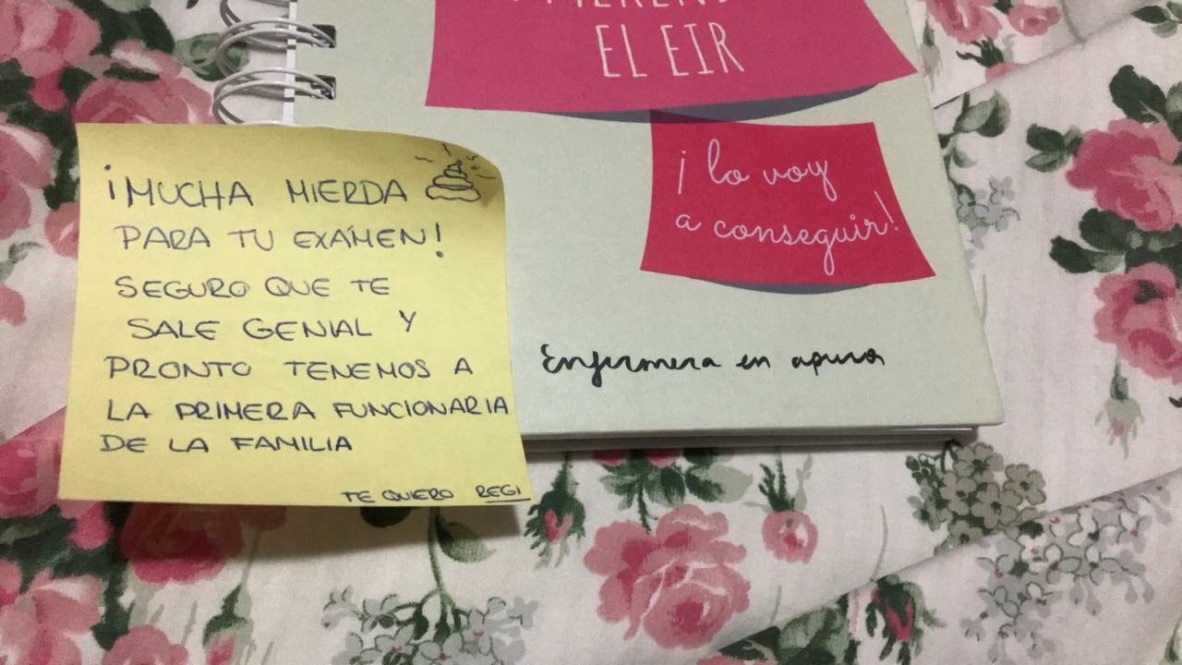 EL EIR
¡lo voy
a conseguir!
Enfermera en apuros
¡MUCHA MIERDA
PARA TU EXÁMEN!
SEGURO QUE TE
SALE GENIAL Y
PRONTO TENEMOS A
LA PRIMERA FUNCIONARIA
DE LA FAMILIA
TE QUIERO REGI